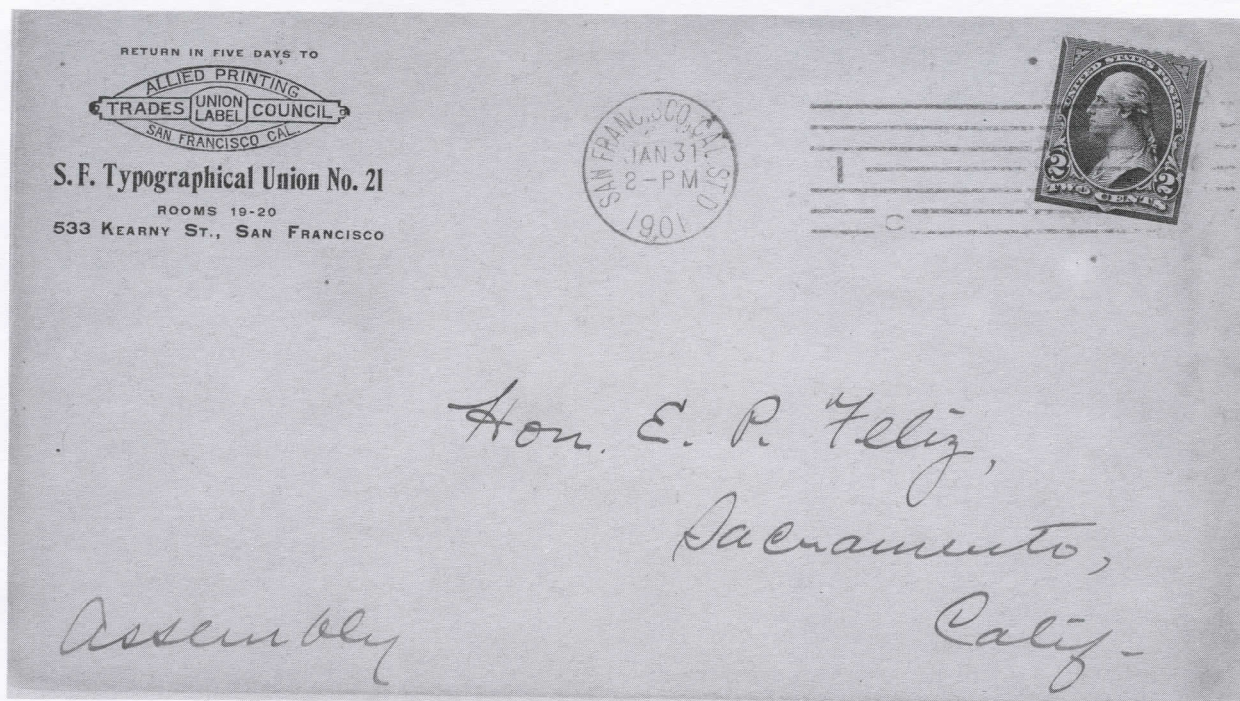 RETURN IN FIVE DAYS TO
ALLIED PRINTING
TRADES UNION LABEL COUNCIL
SAN FRANCISCO CAL.
S.F. Typographical Union No. 21
ROOMS 19-20
533 KEARNY ST., SAN FRANCISCO
SAN FRANCISCO, CAL. ST'D
JAN 31
2-PM
1901
1
C
UNITED STATES POSTAGE
2 2
TWO CENTS
Hon. E. P. Feliz,
Sacramento,
Calif-
Assembly